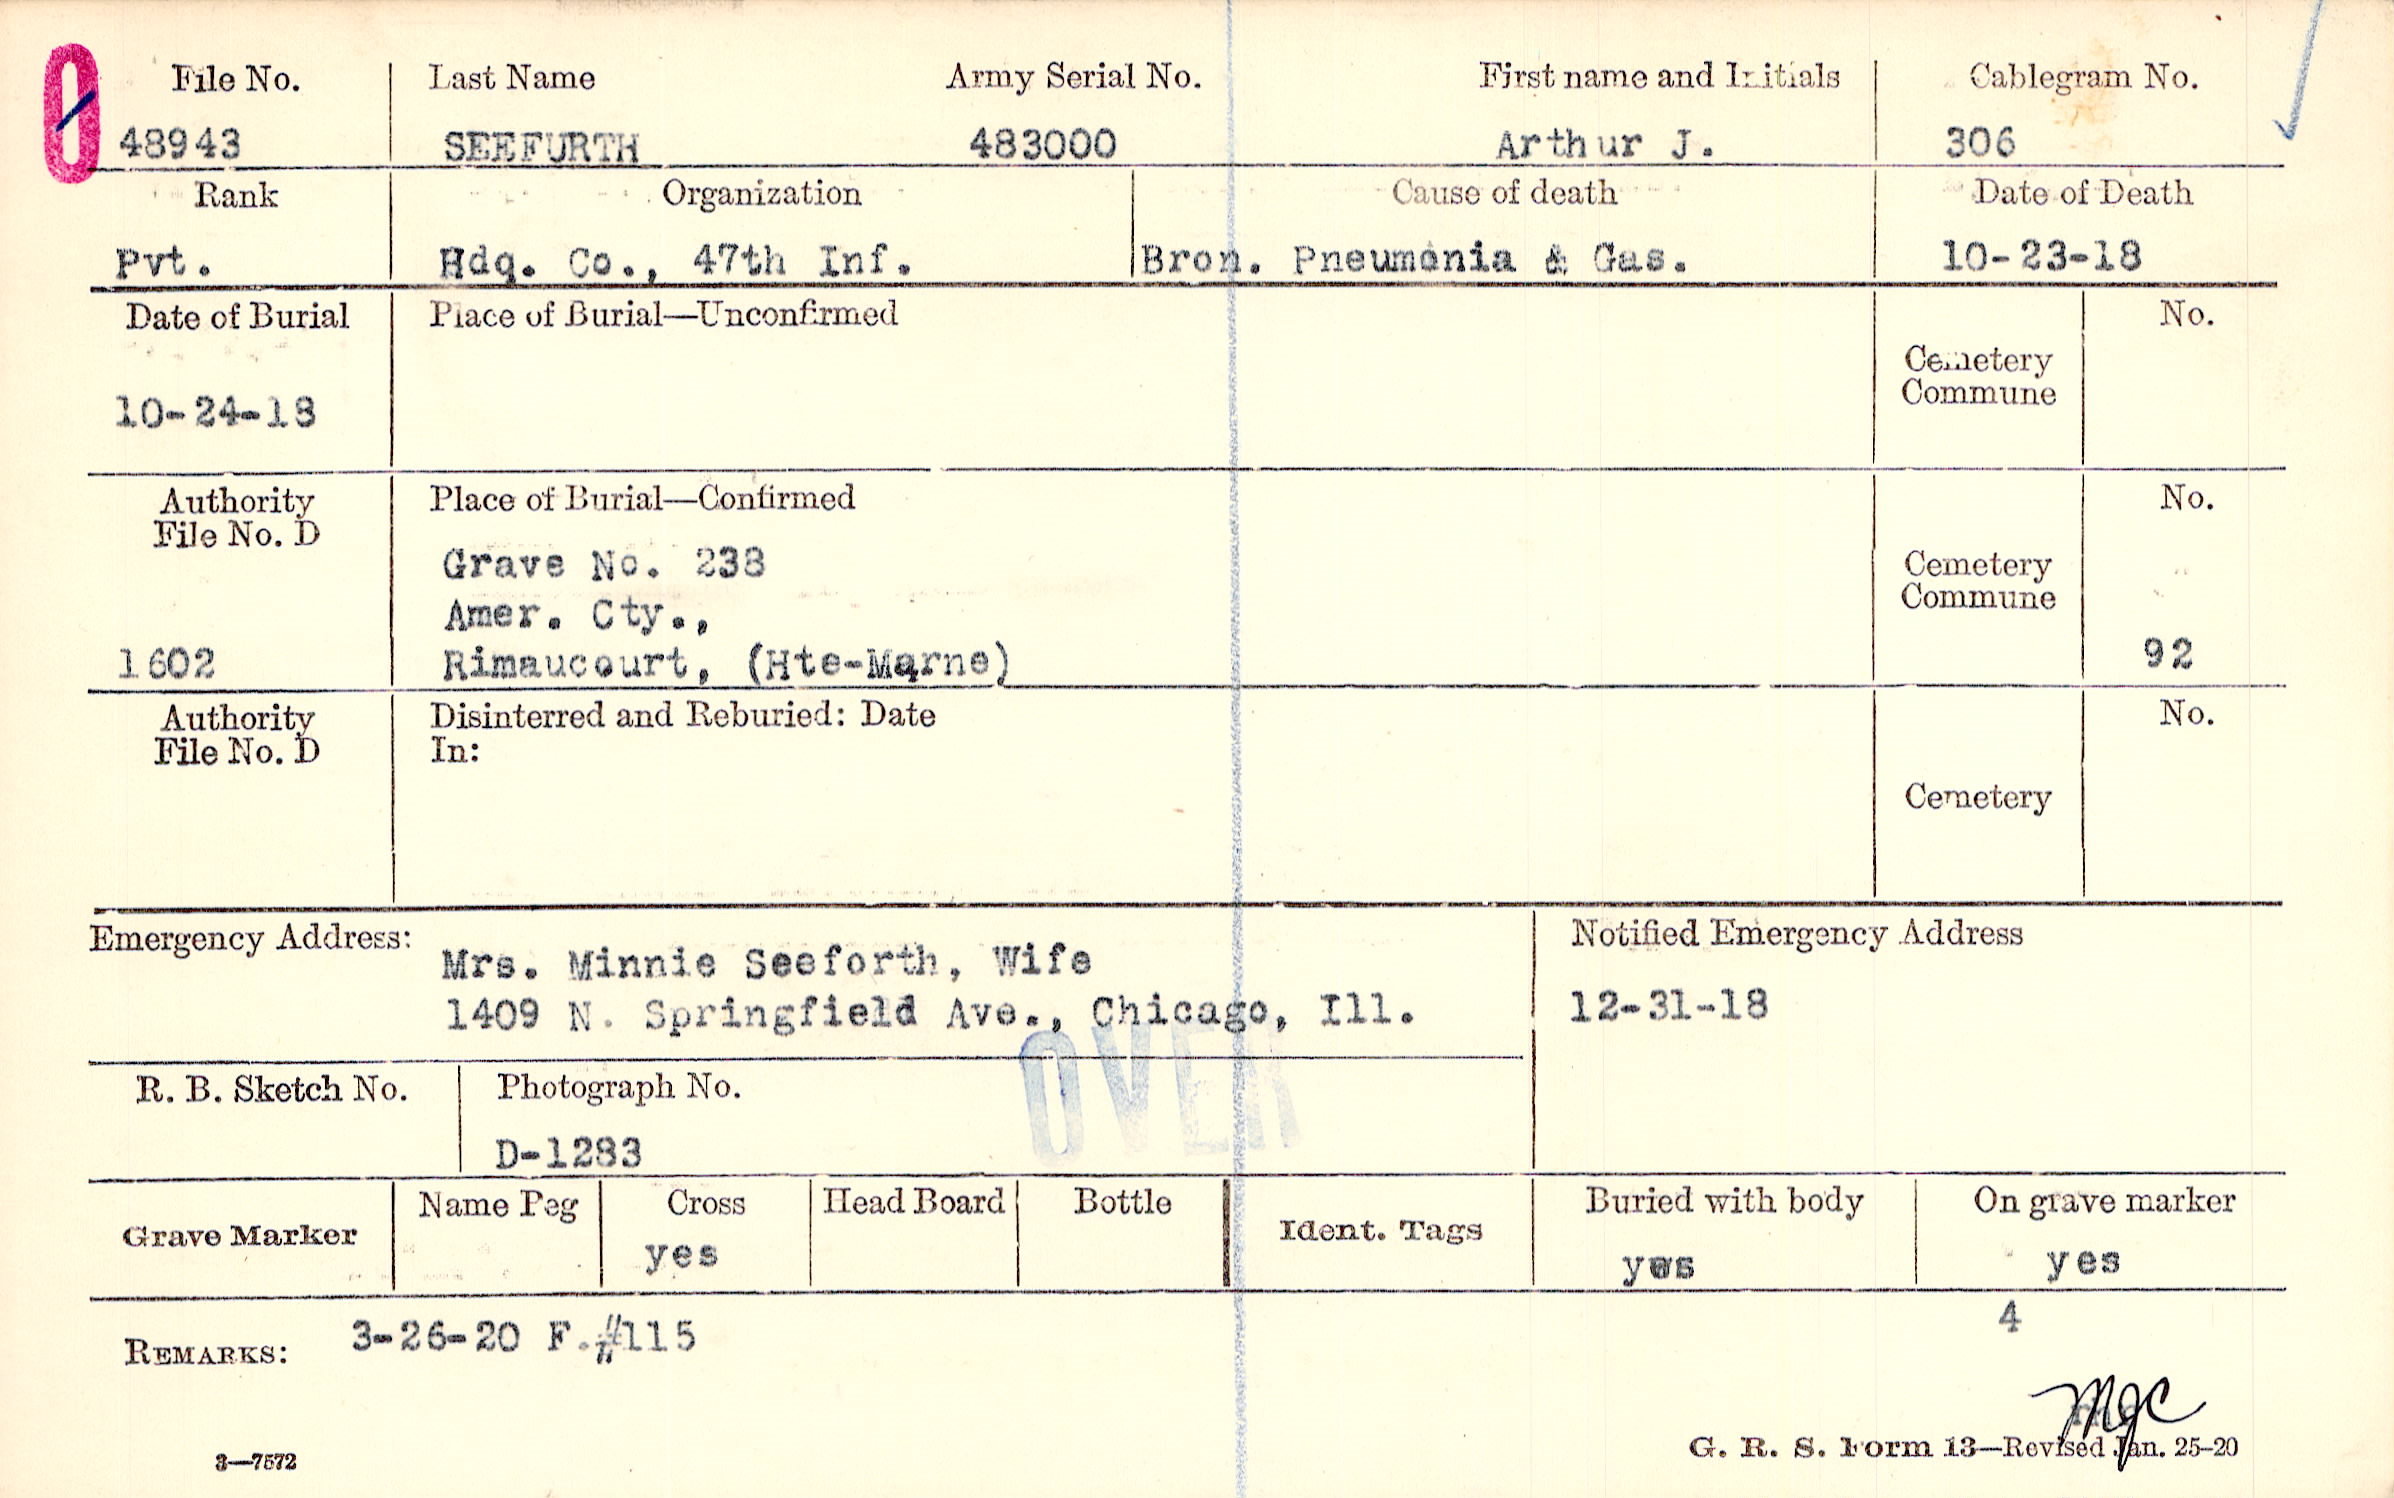 0
File No. Last Name Army Serial No. First name and Initials Cablegram No.
48943 SEEFURTH 483000 Arthur J. 306
Rank Organization Cause of death Date of Death
Pvt. Hdq. Co., 47th Inf. Bron. Pneumonia & Gas. 10-23-18
Date of Burial Place of Burial—Unconfirmed No.
Cemetery
Commune
10-24-18
Authority Place of Burial—Confirmed No.
File No. D
Grave No. 238 Cemetery
Amer. Cty., Commune
1602 Rimaucourt, (Hte-Marne) 92
Authority Disinterred and Reburied: Date No.
File No. D In:
Cemetery
Emergency Address: Notified Emergency Address
Mrs. Minnie Seeforth, Wife
1409 N. Springfield Ave., Chicago, Ill. 12-31-18
OVER
R. B. Sketch No. Photograph No.
D-1283
Grave Marker Name Peg Cross Head Board Bottle Ident. Tags Buried with body On grave marker
yes yes yes
4
REMARKS: 3-26-20 F.#115
MJC
3—7572 G. R. S. Form 13—Revised Jan. 25-20